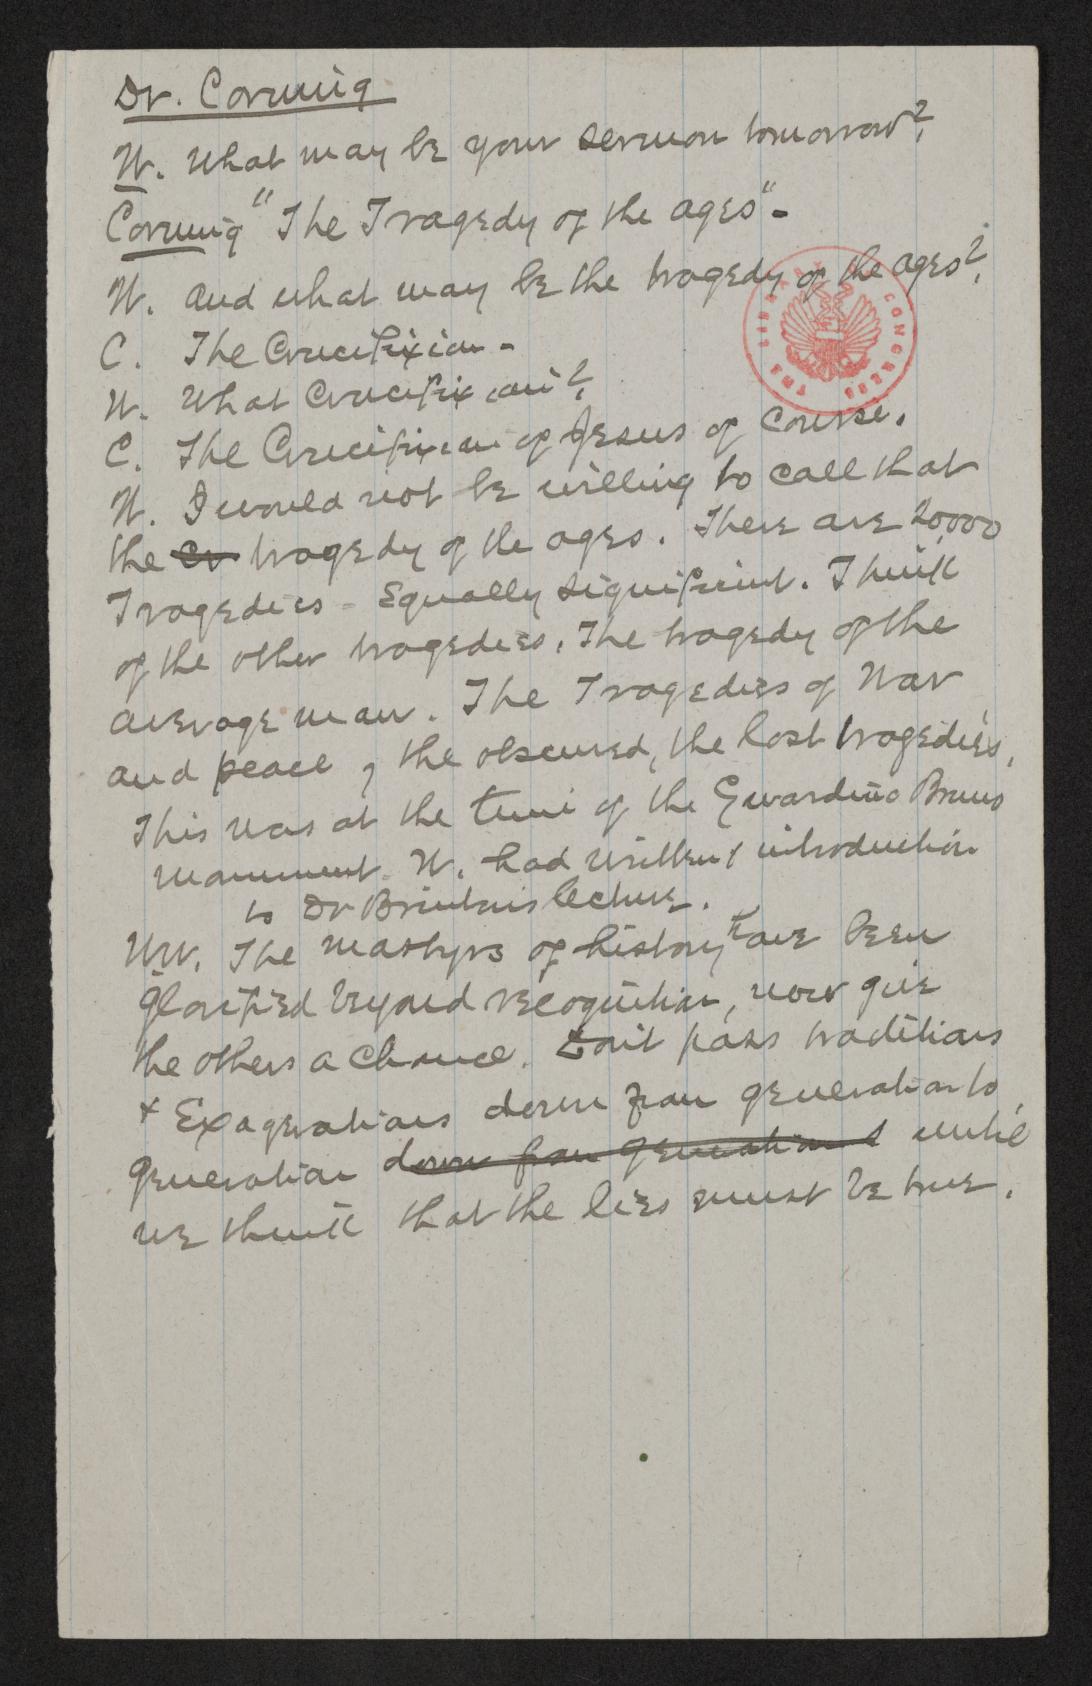 Dr. Corning
W. What may be your sermon tomorrow?
Corning "The Tragedy of the ages"-
W. and what may be the tragedy of the ages?
C. The Crucifixion -
W. What Crucifixion?
C. The Crucifixion of Jesus of Course.
W. I would not be willing to call that
the Cr tragedy of the ages. There are 20000
Tragedies - Equally significant. Think
of the other tragedies. The tragedy of the
average man. The Tragedies of War
and peace, the obscured, the lost tragedies,
This was at the time of the Guardino Bruno
monument. W. had written introduction
to Dr Brintons lecture.
WW. The martyrs of history have been
glorified beyond recognition, now give
the others a chance. Don't pass traditions
+ Exagerations down from generation to
generation down from generation t until
we think that the lies must be true.
THE LIBRARY OF CONGRESS